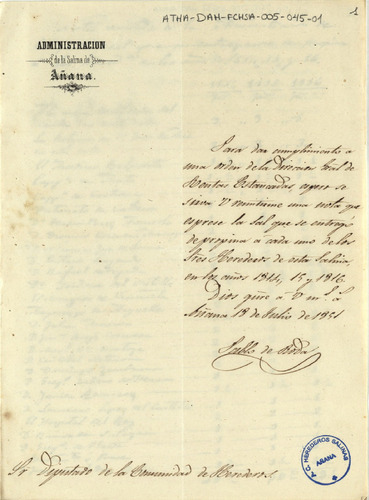 ATHA-DAH-FCHSA-005-045-01
1
ADMINISTRACION
de la Salina de
Añana.
Para dar cumplimiento á
una orden de la Direccion Gral de
Rentas Estancadas espero se
sirva V remitirme una nota que
esprese la sal que se entregó
de propina á cada uno de los
Sres Herederos de esta Salina
en los años 1844, 15 y 1846.
Dios gue á V m.s a.s
Añana 18 de Julio de 1851
Pablo de
Sr Diputado de la Comunidad de Herederos.
A. C. HEREDEROS SALINAS
AÑANA